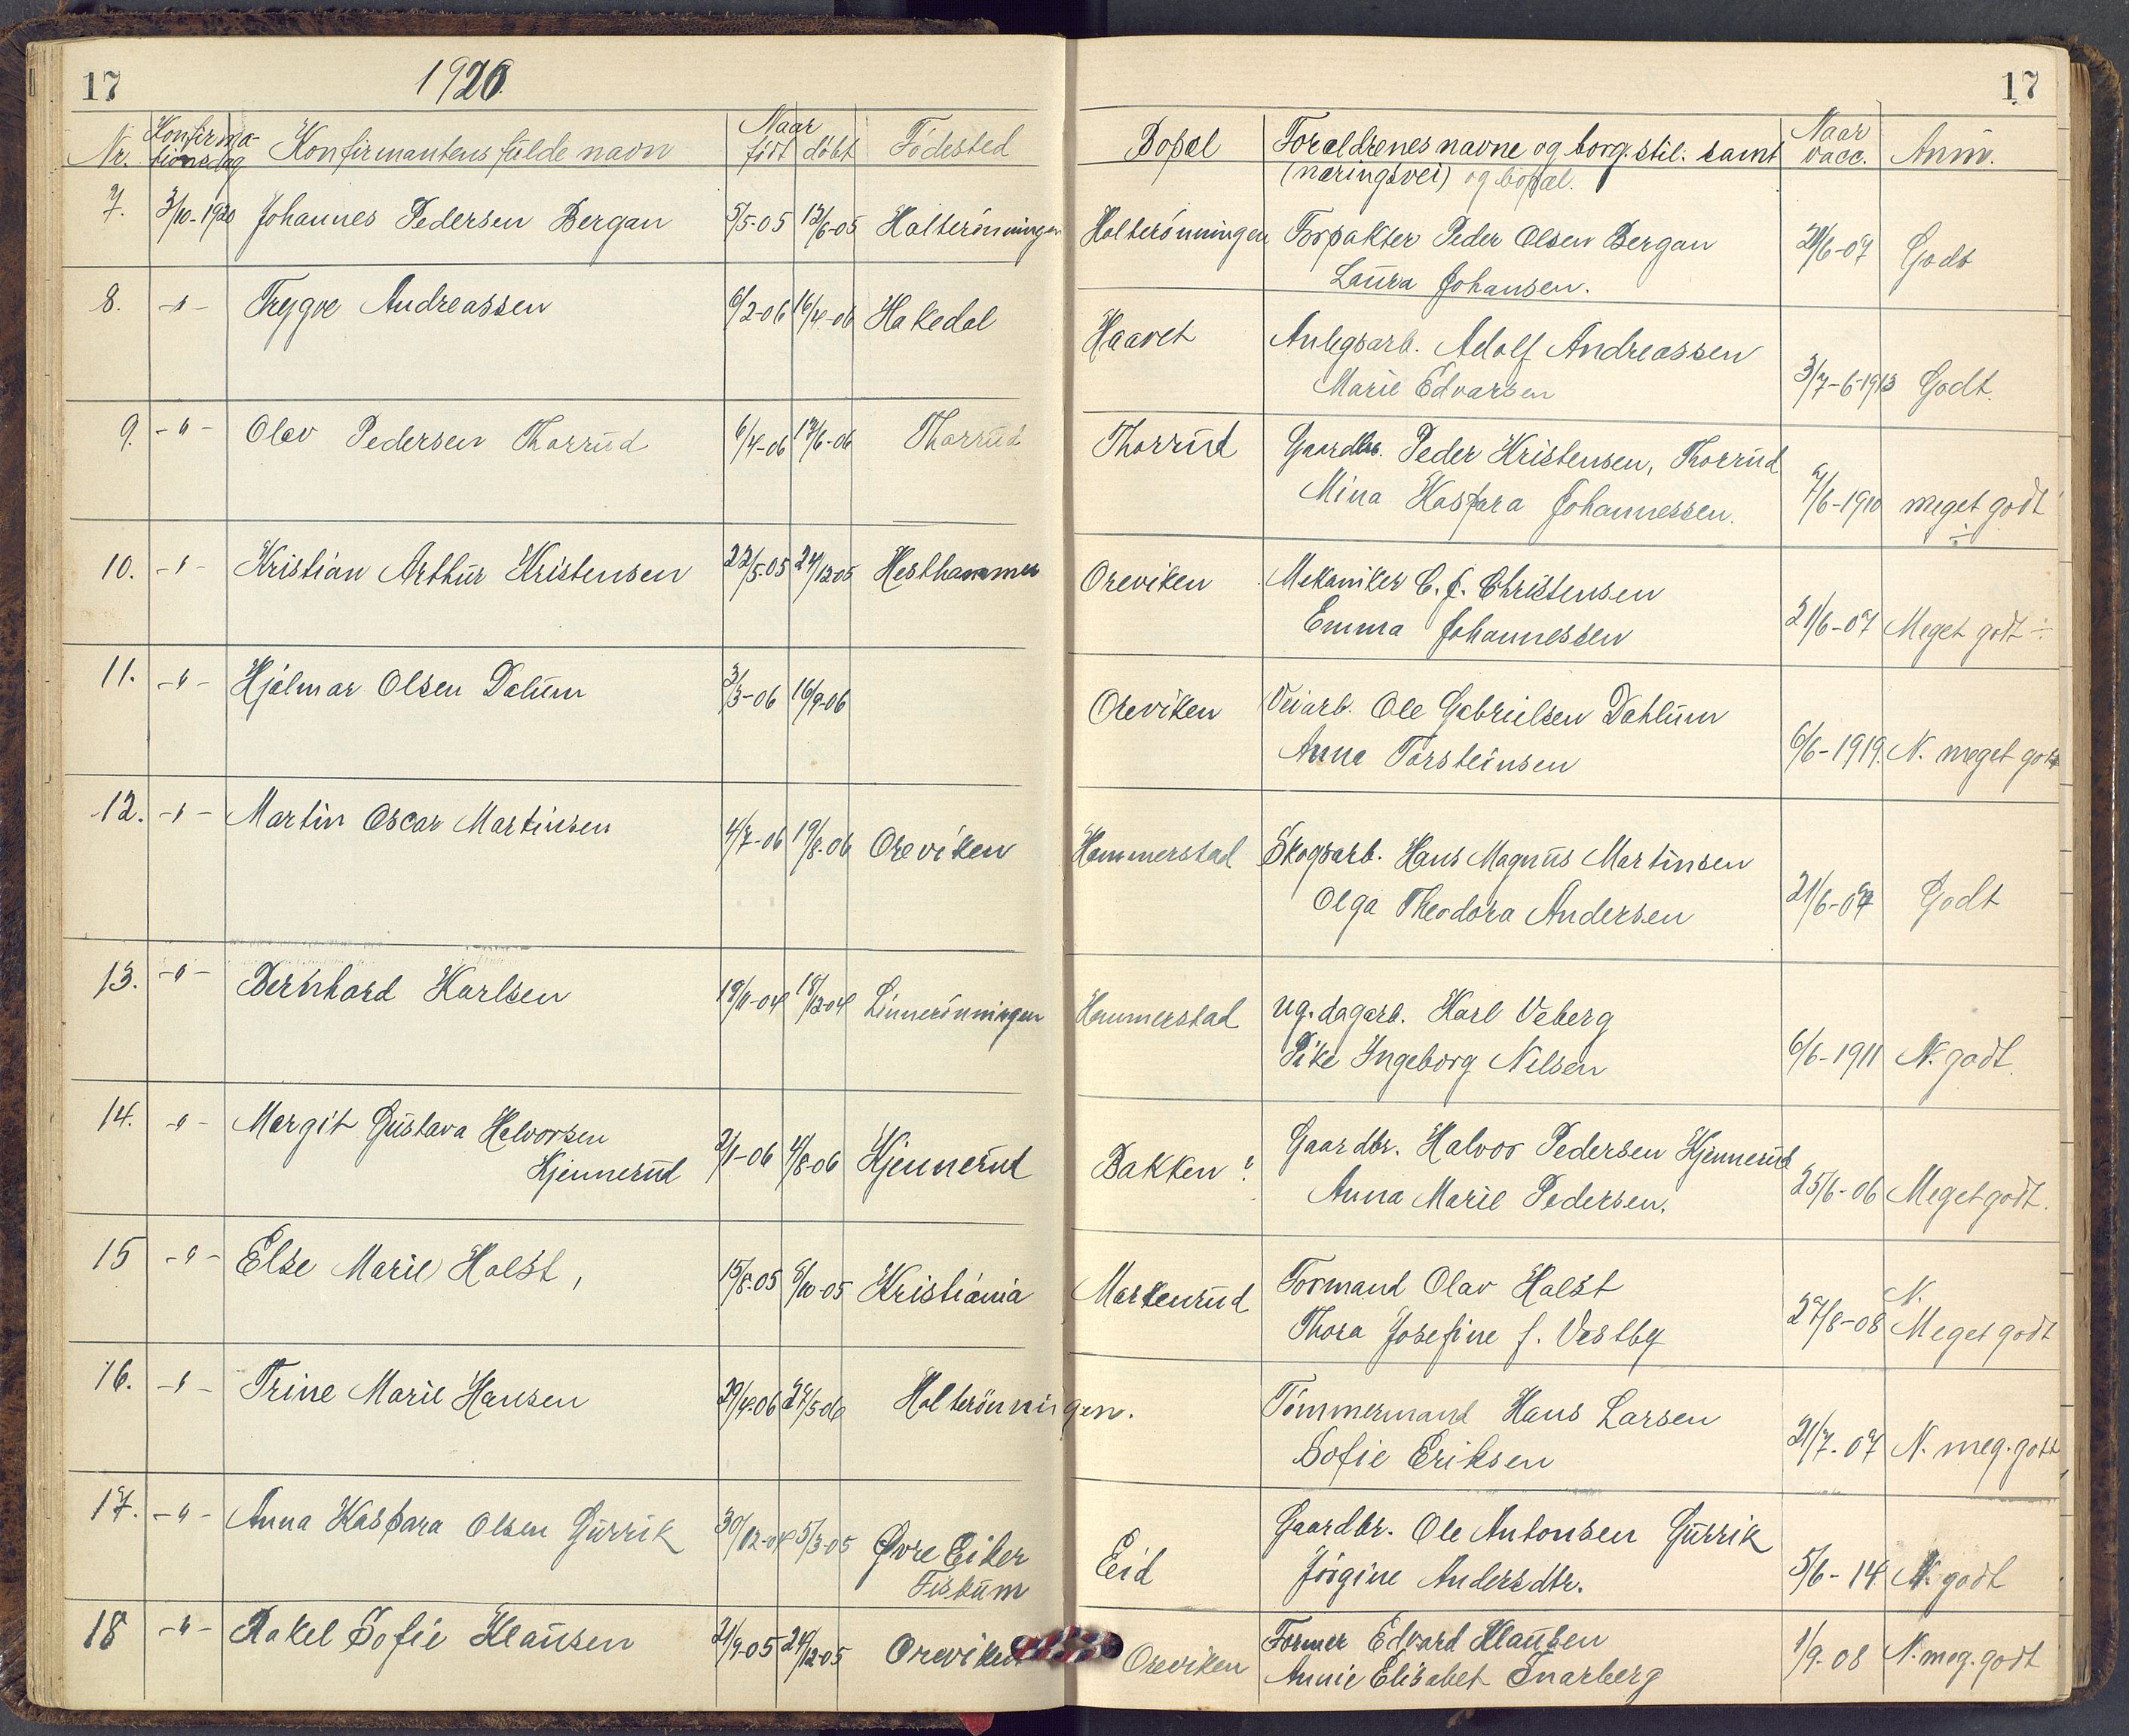 17
1920
17
Nr. Konfirma-
tionsdag Konfirmantens fulde navn Naar
født døbt Fødested
Bopæl Foraldrenes navne og borg. stil. samt
(næringsvei) og bopæl. Naar
vacc. Anm.
7. 3/10-1920 Johannes Pedersen Bergan 5/5-05 12/6-05 Holterönningen
Holterönningen Forpakter Peder Olsen Bergan
Laura Johansen. 21/6-07 Godt
8. -"- Trygve Andreassen 6/2-06 16/4-06 Hakedal
Haavet Anlegsarb. Adolf Andreassen
Marie Edvarsen 3/7-6-1913 Godt.
9. -"- Olav Pedersen Thorrud 6/4-06 17/6-06 Thorrud
Thorrud Gaardbr. Peder Kristensen, Thorrud
Mina Kaspara Johannessen. 7/6-1910 meget godt
÷
10. -"- Kristian Arthur Kristensen 22/5-05 24/12-05 Hesthammer
Oreviken Mekaniker C. J. Christensen
Emma Johannessen 21/6-07 Meget godt ÷
11. -"- Hjalmar Olsen Dalum 3/3-06 16/9-06
Oreviken Veiarb. Ole Gabrielsen Dahlum
Anna Torsteinsen 6/6-1919. N. meget godt
12. -"- Martin Oscar Martinsen 4/7-06 19/8-06 Oreviken
Hammerstad Skogsarb. Hans Magnus Martinsen
Olga Theodora Andersen 21/6-07 Godt
13. -"- Bernhard Karlsen 19/11-04 18/12-04 Linnerönningen
Hammerstad ug. dagarb. Karl Veberg
Pike Ingeborg Nilsen 6/6-1911 N. godt.
14. -"- Margit Gustava Halvorsen
Kjennerud 2/1-06 4/8-06 Kjennerud
Bakken ? Gaardbr. Halvor Pedersen Kjennerud
Anna Marie Pedersen. 25/6-06 Meget godt.
15 -"- Else Marie Holst, 15/8-05 8/10-05 Kristiania
Markenrud Formand Olav Holst
Thora Josefine f. Vestby 27/8-08 N.
Meget godt
16. -"- Trine Marie Hansen 29/4-06 24/5-06 Holterönningen.
Tömmermand Hans Larsen
Sofie Eriksen 21/7-07 N. meg. godt
17. -"- Anna Kaspara Olsen Gurrik 30/12-04 5/3-05 Øvre Eiker
Fiskum
Eid Gaardbr. Ole Antonsen Gurrik
Jörgine Andersdtr. 5/6-14 N. godt
18 -"- Rakel Sofie Klausen 21/9-05 24/12-05 Oreviken
Oreviken Former Edvard Klausen
Annie Elisabet Snarberg 1/9-08 N. meg. godt